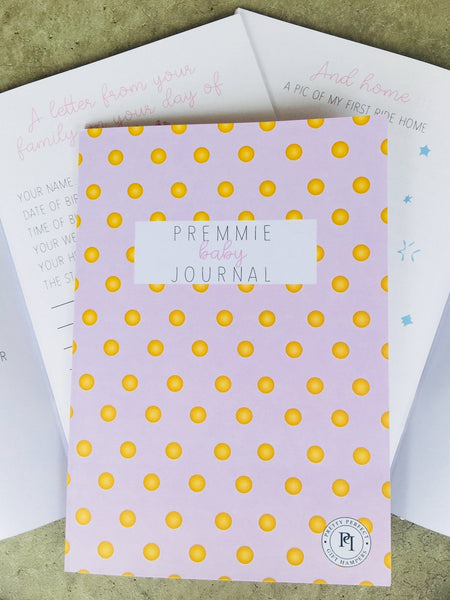 A letter from your
family on your day of
YOUR NAME
DATE OF BIR
TIME OF B
YOUR WE
YOUR H
THE ST
And home
A PIC OF MY FIRST RIDE HOME
PREMMIE
baby
JOURNAL
PRETTY PERFECT
PH
GIFT HAMPERS
R